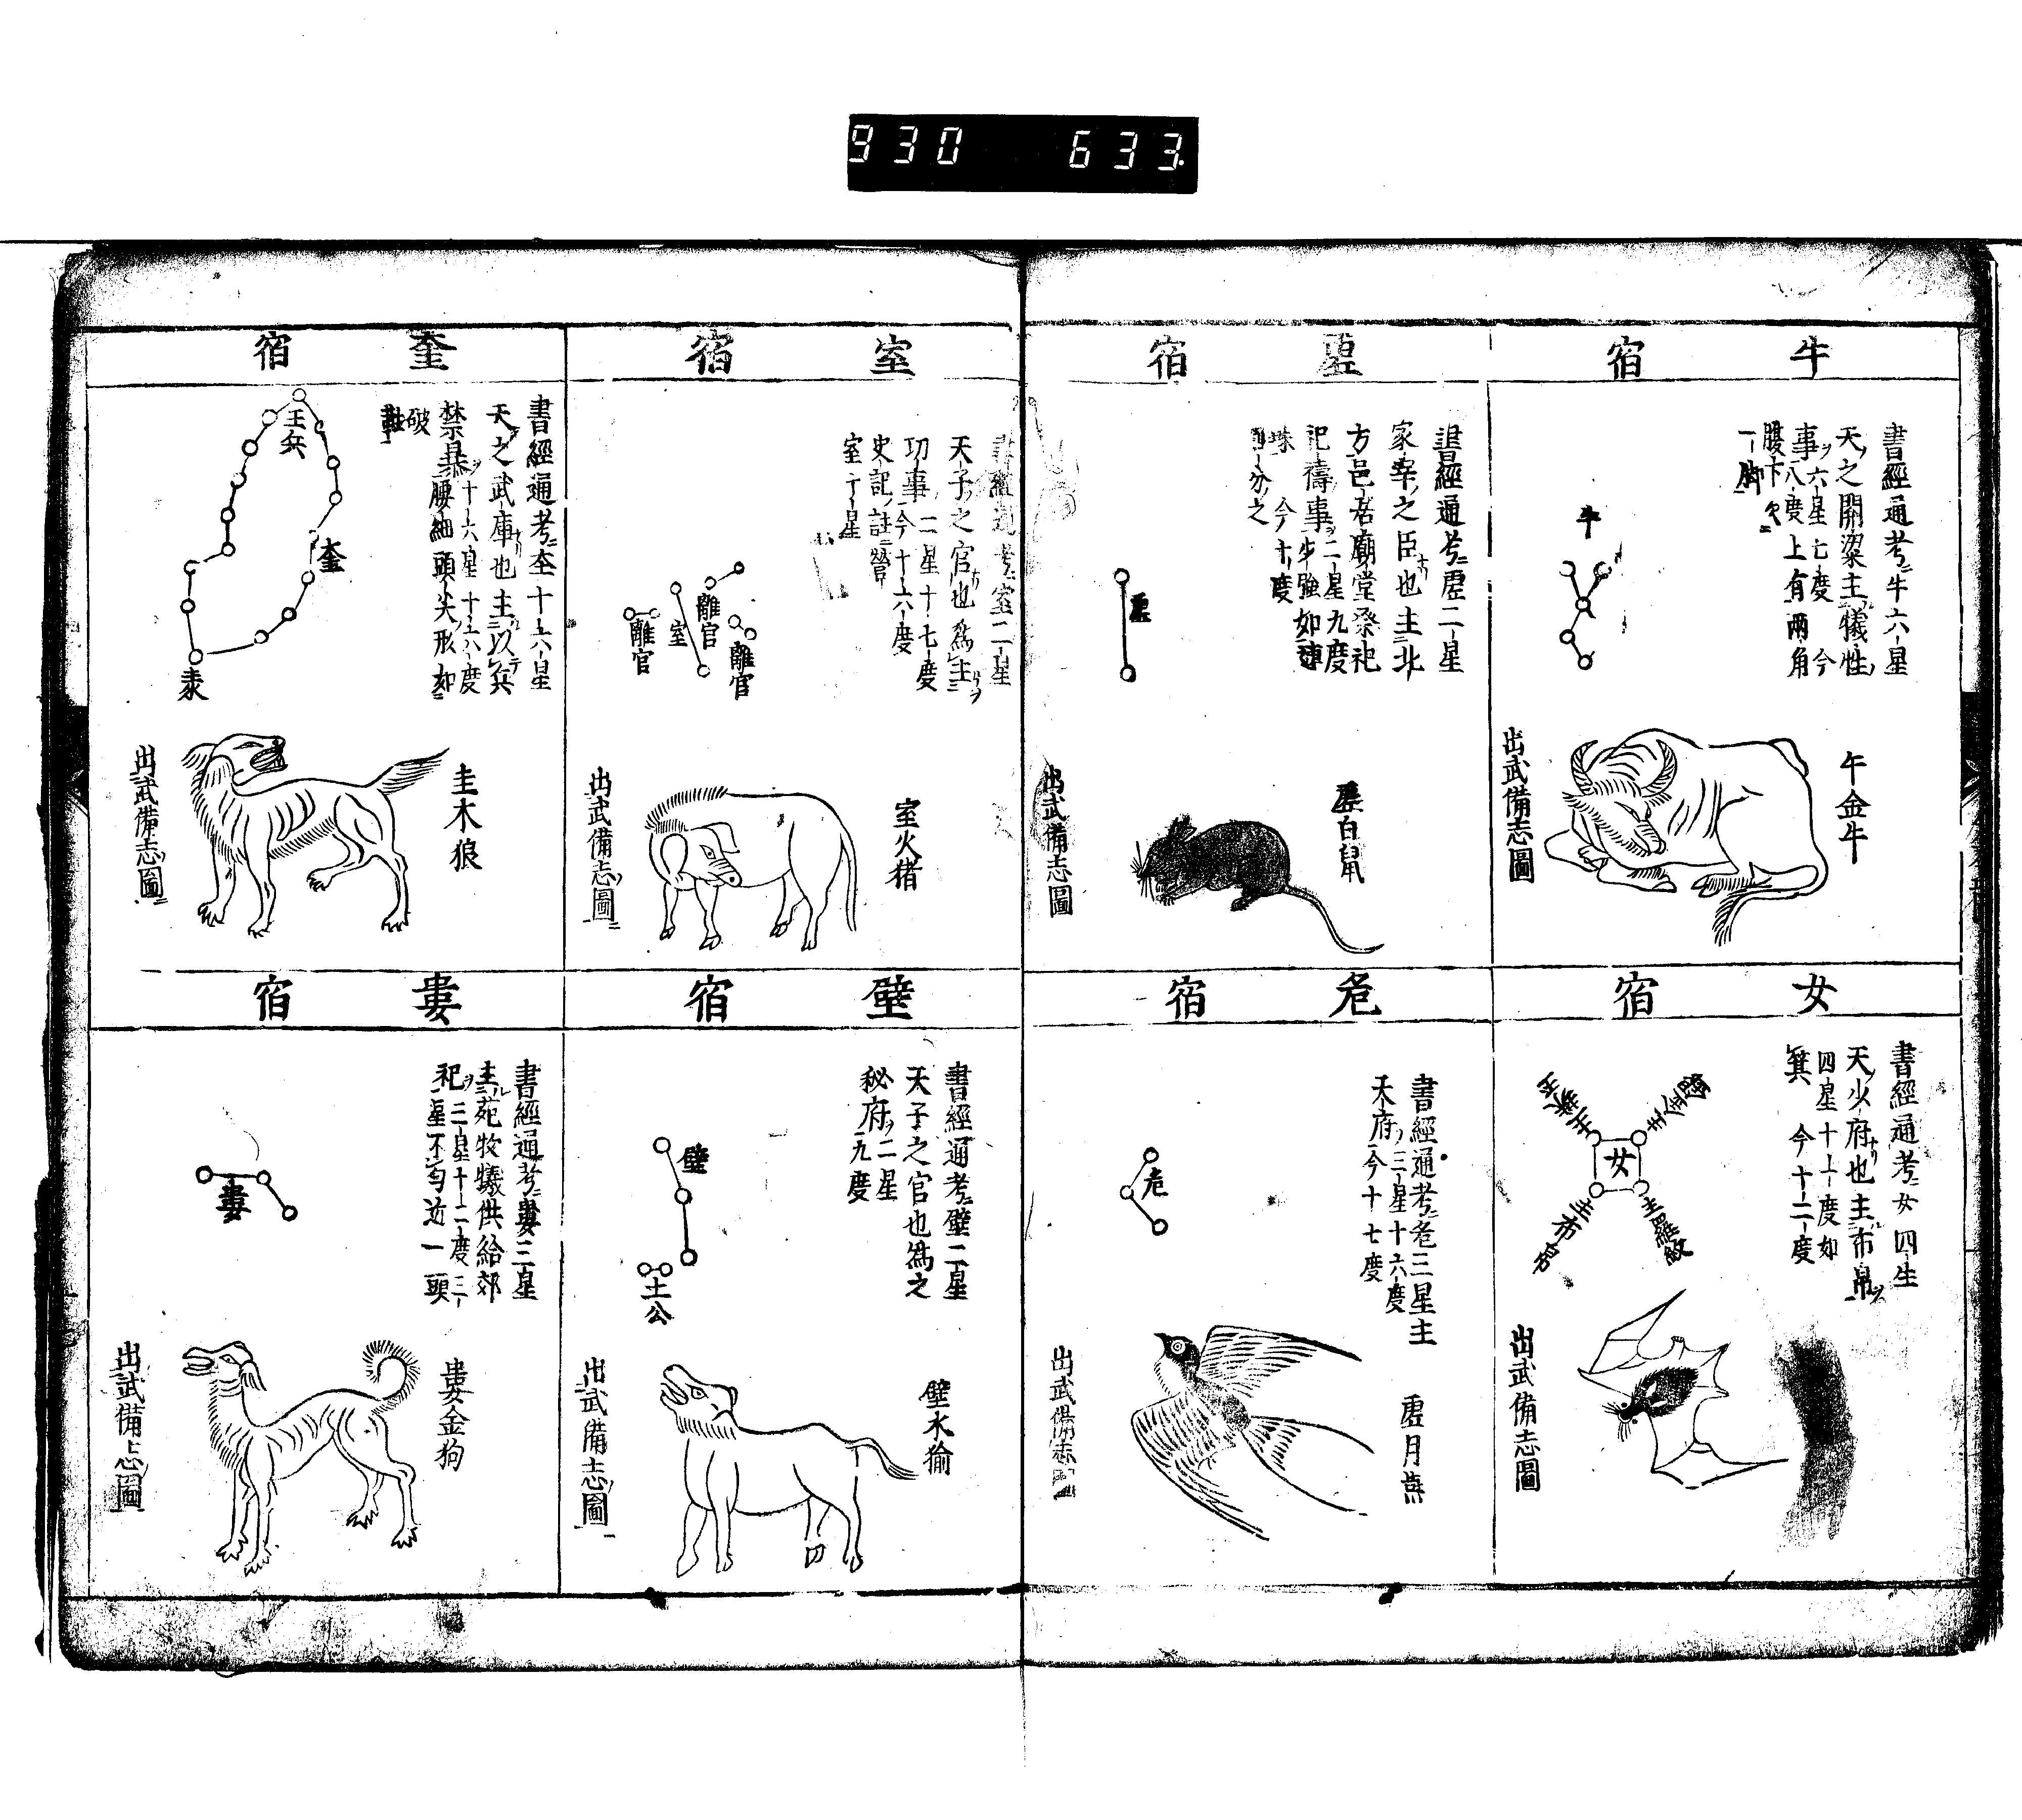 930 633
牛宿
書經通考ニ牛六星
天ノ之關梁主犧牲ノ
事ヲ六星七度 今
八度上有兩角
腹下欠ニ
一脚
牛
午金牛
出武備志圖
女宿
書經通考ニ女四生
天ノ少府也主布帛ヲ
四星十一度如
箕 今十二度
女
主羅紋
出武備志圖
虛宿
書經通考ニ虛二星
家宰ノ之臣也主北
方邑居廟堂祭祀
祀禱事二星九度
少強如連
珠 今十度
分ノ之
虛
虛白鼠
出武備志圖
危宿
書經通考ニ危三星主
天府ヲ三星十六度
今十七度
危
虛月燕
出武備志圖
室宿
書經通考ニ室二星
天子ノ之官也爲主
功事二星十七度
今十六度
史記ノ註ニ營
室二星
離宮
離宮
離宮
室
室火猪
出武備志圖
壁宿
書經通考ニ壁二星
天子之官也爲之
秘府ヲ二星
九度
壁
土公
壁水貐
四
出武備志圖
奎宿
書經通考ニ奎十六星
天之武庫也主以兵
禁暴ヲ十六星十六度
腰細頭尖形如
破
王兵
奎
圭木狼
出武備志圖
婁宿
書經通考ニ婁三星
主苑牧犧供給郊
祀ヲ三星十二度三
星不勻近一頭
婁
婁金狗
出武備志圖